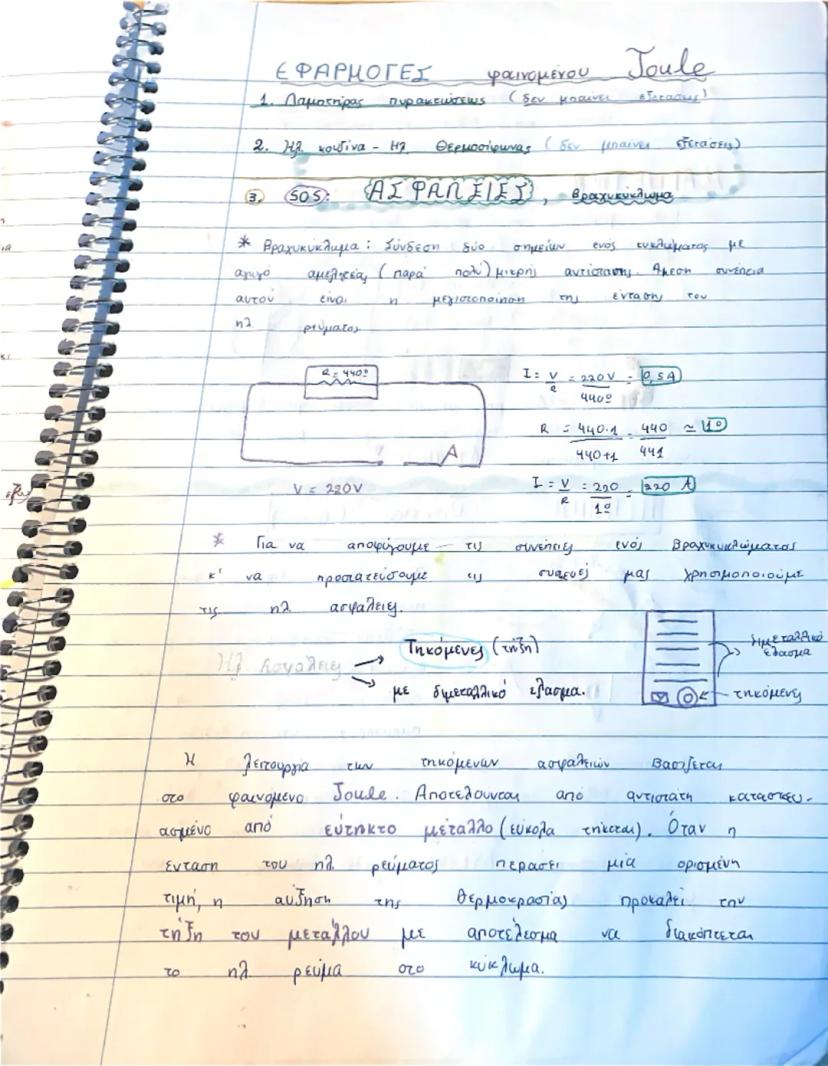 ΕΦΑΡΜΟΓΕΣ φαινομένου Joule
1. Λαμπτήρας πυρακτώσεως (δεν μπαίνει εξετάσεις)
2. Ηλ κουζίνα - Ηλ Θερμοσίφωνας (δεν μπαίνει εξετάσεις)
3. SOS: ΑΣΦΑΛΕΙΕΣ, Βραχυκύκλωμα
* Βραχυκύκλωμα: Σύνδεση δύο σημείων ενός κυκλώματος με
αγωγό αμελητέας (παρά πολύ) μικρής αντίστασης. Άμεση συνέπεια
αυτού είναι η μεγιστοποίηση της έντασης του
ηλ ρεύματος
R = 440Ω
I = V/R = 220V/440Ω = 0,5A
R = 440·1/440+1 = 440/441 ≃ 1Ω
A
V = 220V
I = V/R = 220/1Ω = 220 A
* Για να αποφύγουμε τις συνέπειες ενός Βραχυκυκλώματος
κ' να προστατεύσουμε τις συσκευές μας χρησιμοποιούμε
τις ηλ ασφάλειες.
Ηλ Ασφάλειες → Τηκόμενες (τήξη)
→ με διμεταλλικό έλασμα.
διμεταλλικό
έλασμα
τηκόμενη
Η λειτουργία των τηκόμενων ασφαλειών βασίζεται
στο φαινόμενο Joule. Αποτελούνται από αντιστάτη κατασκευ-
ασμένο από εύτηκτο μέταλλο (εύκολα τήκεται). Όταν η
ένταση του ηλ ρεύματος περάσει μία ορισμένη
τιμή, η αύξηση της θερμοκρασίας προκαλεί την
τήξη του μετάλλου με αποτέλεσμα να διακόπτεται
το ηλ ρεύμα στο κύκλωμα.